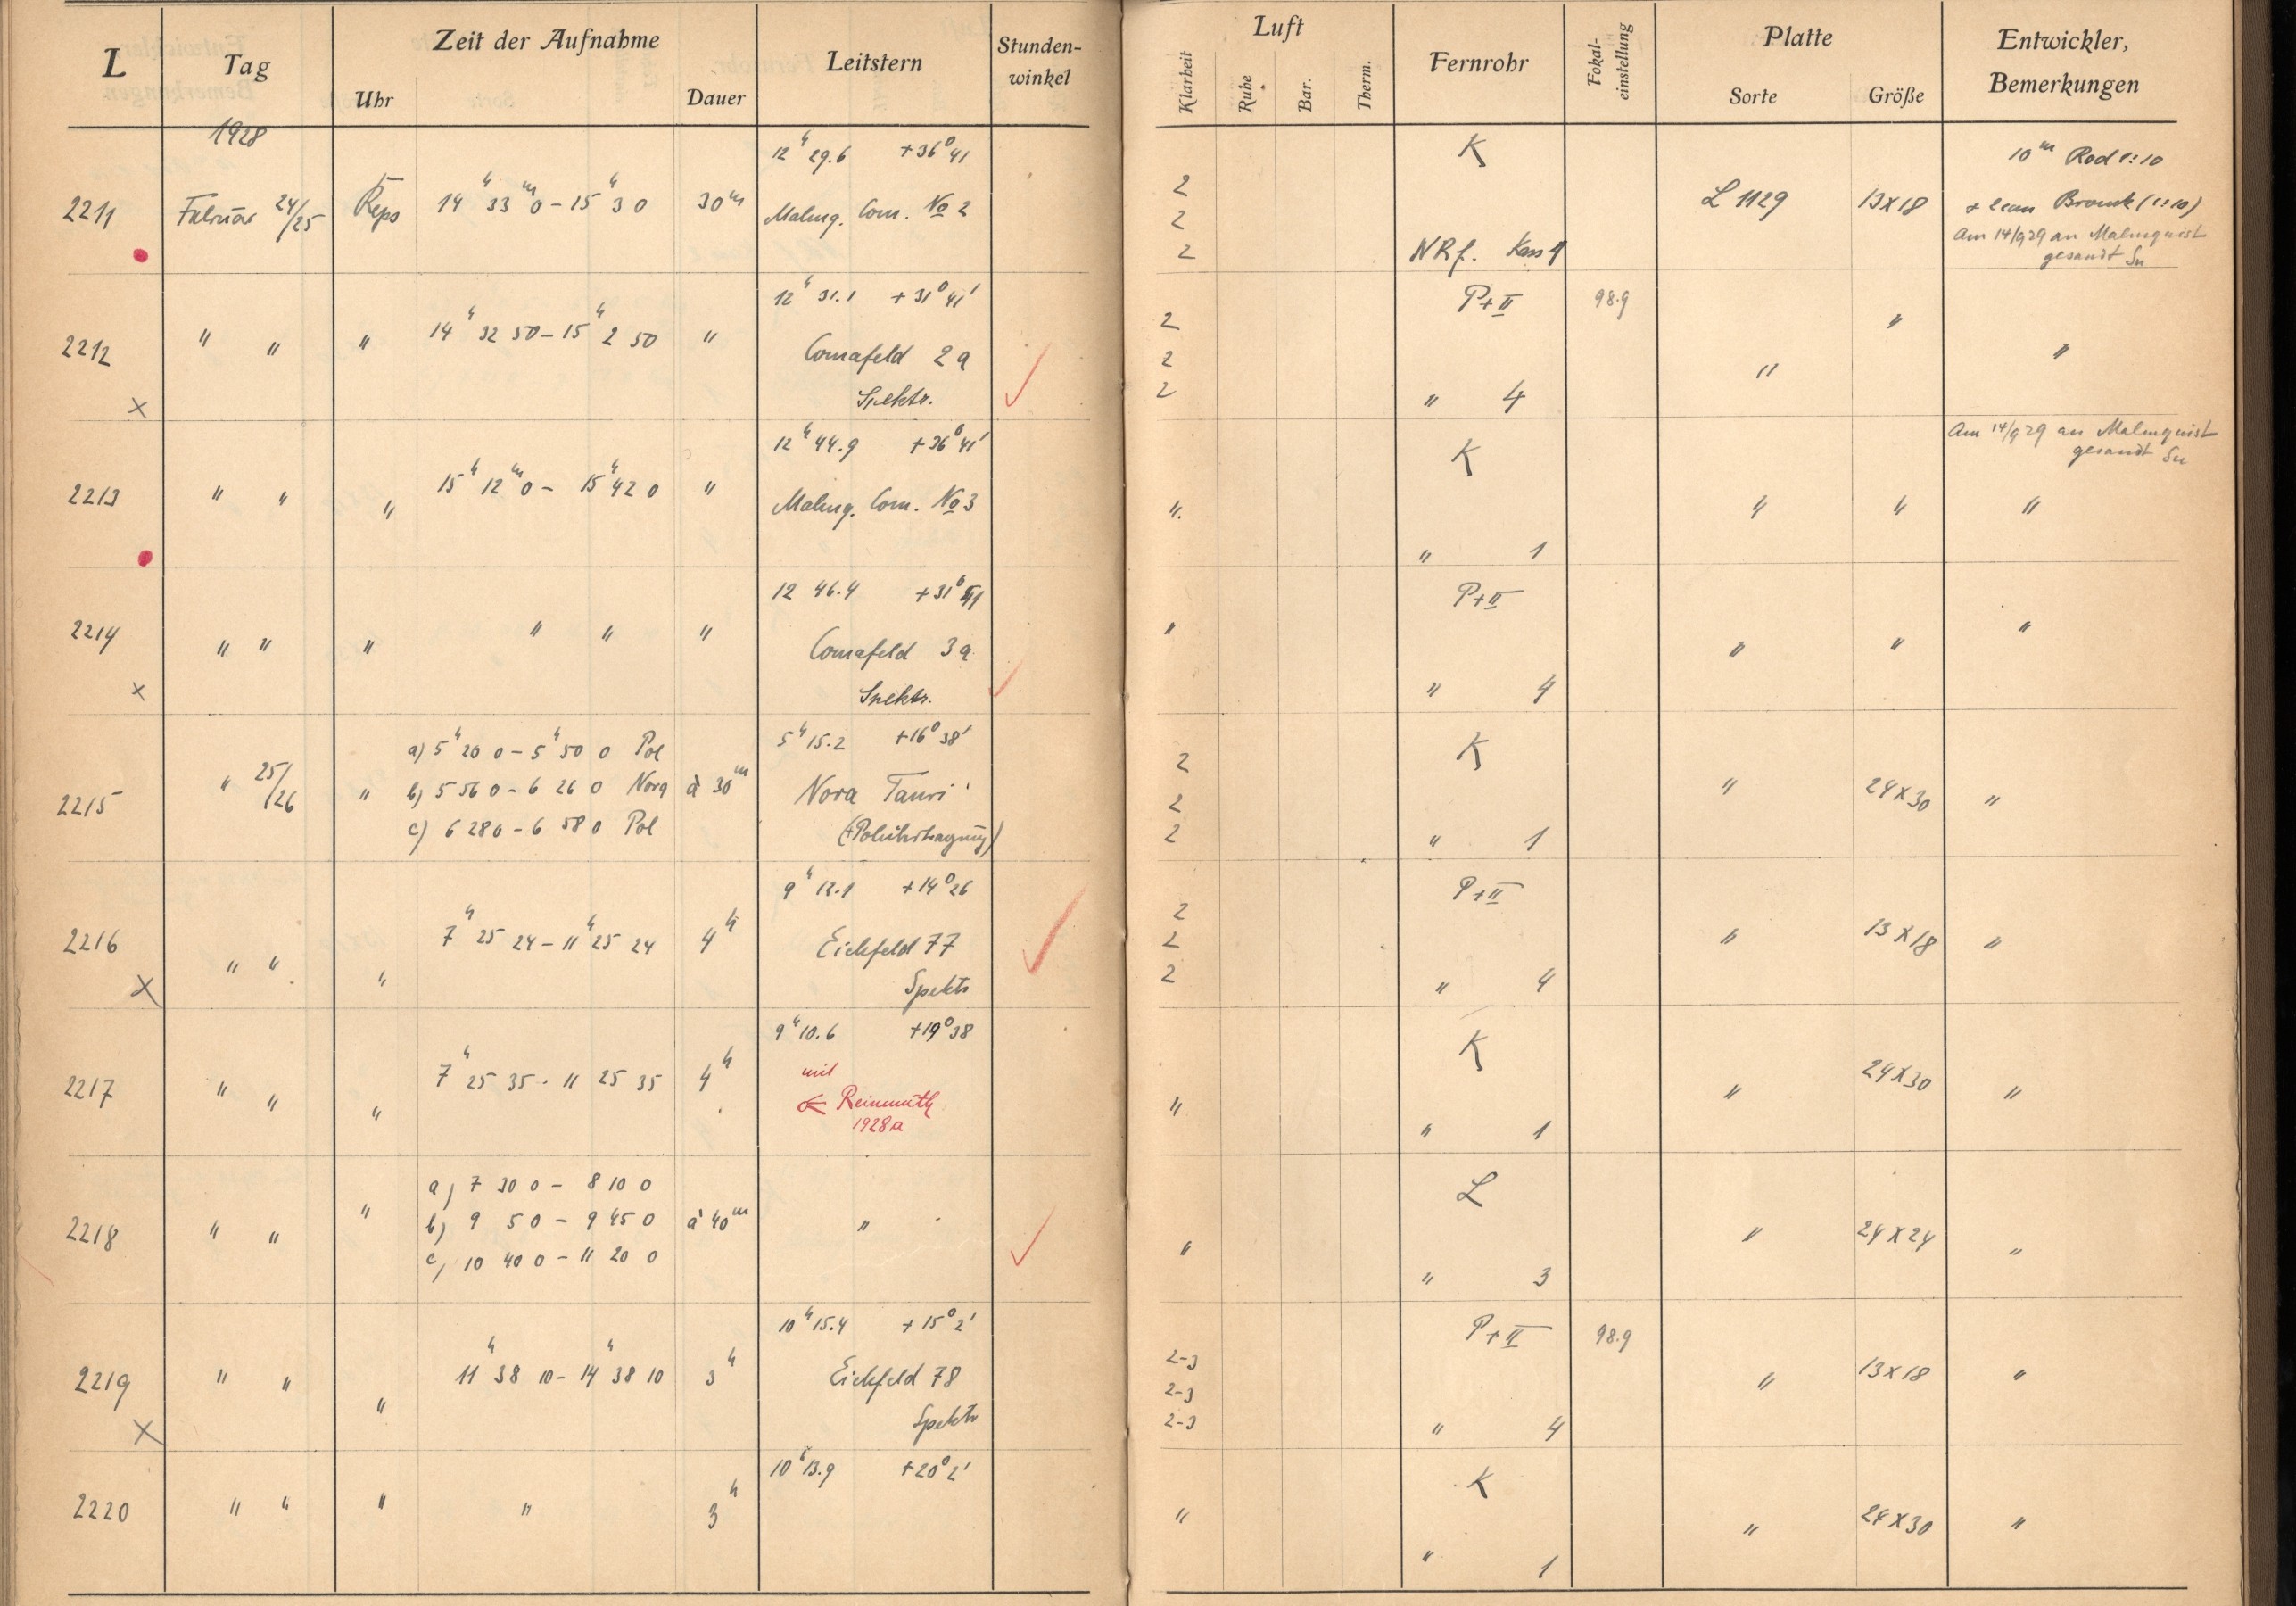 L Tag Zeit der Aufnahme Leitstern Stunden-winkel Luft Fernrohr Fokal-einstellung Platte Entwickler, Bemerkungen
Uhr Dauer Klarheit Ruhe Bar. Therm. Sorte Größe
1928
12ʰ 29.6 +36° 41 K 10ᵐ Rod 1:10
2211 Februar 24/25 Reps 14ʰ 33ᵐ 0 – 15ʰ 3 0 30ᵐ Malmq. Com. No 2 2 2 2 L 1129 13x18 + 2ccm Bromk (1:10)
NRf. Kass 1 Am 14/9 29 an Malmquist
gesandt Su
12ʰ 31.1 +31° 41' P+II 98.9
2212 " " " 14ʰ 32 50 – 15ʰ 2 50 " Comafeld 2a 2 2 2 " " "
x Spektr. " 4
12ʰ 44.9 +36° 41' K Am 14/9 29 an Malmquist
gesandt Su
2213 " " " 15ʰ 12ᵐ 0 – 15ʰ 42 0 " Malmq. Com. No 3 " " " "
" 1
12 46.4 +31° 41 P+II
2214 " " " " " " Comafeld 3a " " " "
x Spektr. " 4
a) 5ʰ 20 0 – 5ʰ 50 0 Pol 5ʰ 15.2 +16° 38' K
2215 " 25/26 " b) 5 56 0 – 6 26 0 Nova à 30ᵐ Nova Tauri 2 2 2 " 24x30 "
c) 6 28 0 – 6 58 0 Pol (+Polübertragung) " 1
9ʰ 12.1 +14° 26 P+II
2216 " " " 7ʰ 25 24 – 11ʰ 25 24 4ʰ Eichfeld 77 2 2 2 " 13x18 "
x Spektr " 4
9ʰ 10.6 +19° 38 K
2217 " " " 7ʰ 25 35 - 11 25 35 4ʰ mit " " 24x30 "
Reinmuth " 1
1928a
a) 7 30 0 – 8 10 0 L
2218 " " " b) 9 5 0 – 9 45 0 à 40ᵐ " " " 24x24 "
c) 10 40 0 – 11 20 0 " 3
10ʰ 15.4 +15° 2' P+II 98.9
2219 " " " 11ʰ 38 10 – 14ʰ 38 10 3ʰ Eichfeld 78 2-3 2-3 2-3 " 13x18 "
x Spektr " 4
10ʰ 13.9 +20° 2' K
2220 " " " " 3ʰ " " 24x30 "
" 1